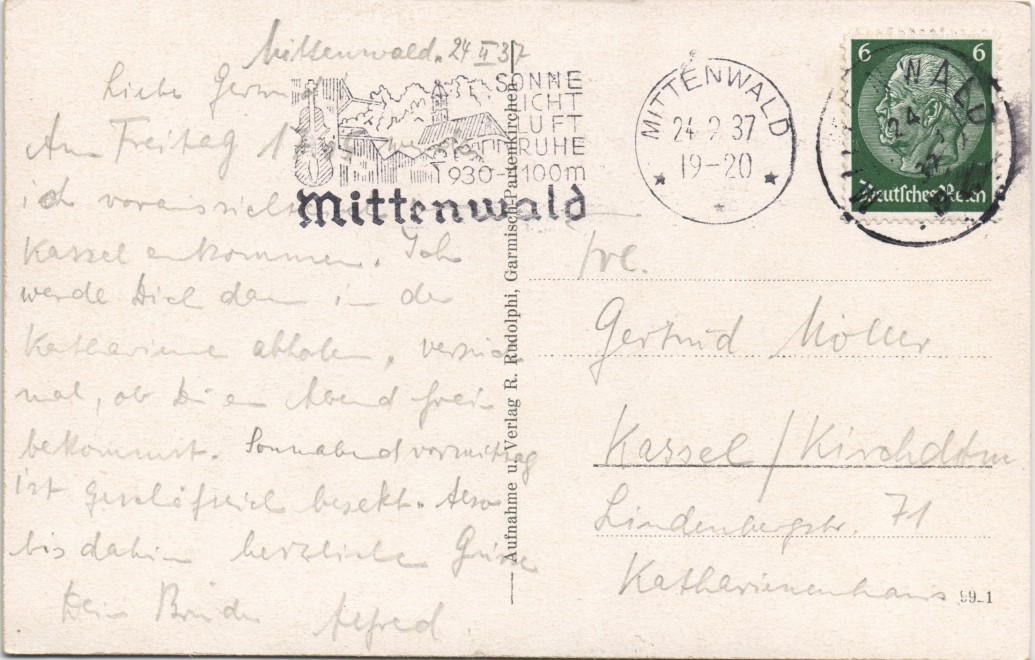 Mittenwald. 24 II 37
Liebe
Am Freitag
ich
Kassel ankommen. Ich
werde Dich dann in der
Katharine abholen, versuch
mal, ob Du am Abend frei
bekommst. Sonnabendvormittag
ist besetzt. Also
bis dahin herzliche Grüsse
Dein Bruder Alfred.
SONNE
LICHT
LUFT
RUHE
930-1100m
Mittenwald
MITTENWALD
24.2.37
19-20
6 6
Deutsches Reich
MITTENWALD
24
37
Aufnahme u. Verlag R. Rudolphi, Garmisch-Partenkirchen
Frl.
Gertrud Möller
Kassel / Kirchditm
Lindenbergstr. 71
Katharinenhaus
99-1